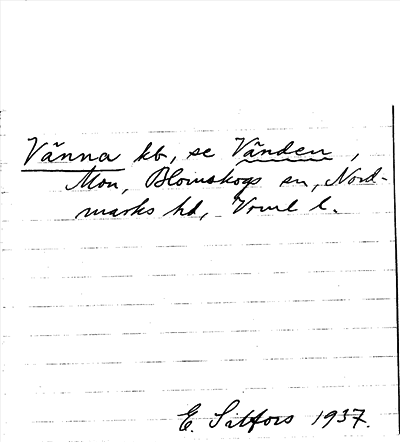 Vänna kb, se Vänden,
Mon, Blomskogs sn, Nord-
marks hd, Vrml l.
E. Sitfors 1937.